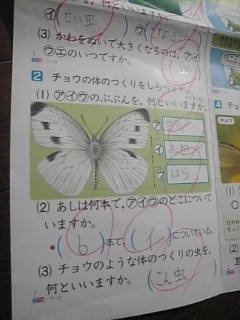 ㋑ せい虫
㋒
(3) かわをぬいで大きくなるのは、㋐㋑
㋒㋓のいつですか。
2 チョウの体のつくりをしらべ
(1) ㋐㋑㋒のぶぶんを、何といいますか。
㋐
㋑ むね
㋒ はら
(2) あしは何本で、㋐㋑㋒のどこについて
いますか。
( 6 )本で、( イ )についている。
(3) チョウのような体のつくりの虫を、
何といいますか。
(こん虫)
4
チョウ
(1)
(2)